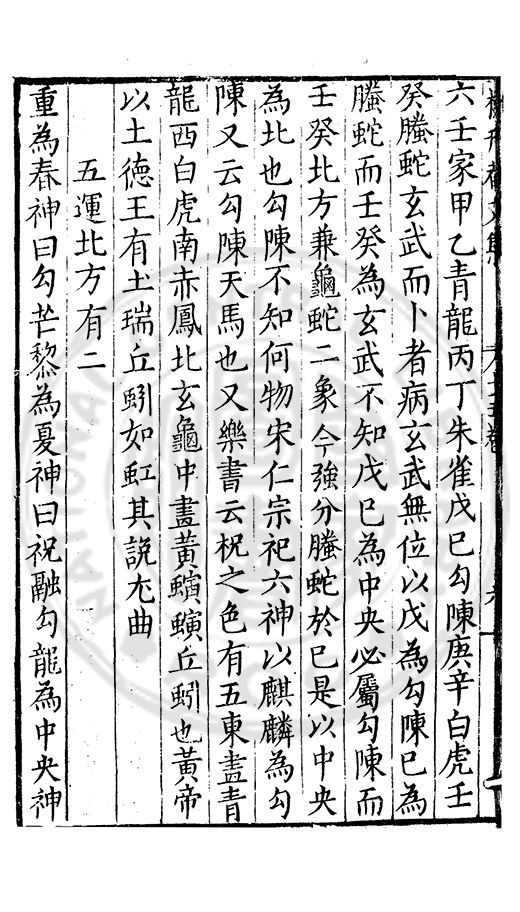 六壬家甲乙青龍丙丁朱雀戊巳勾陳庚辛白虎壬
癸螣蛇玄武而卜者病玄武無位以戊為勾陳巳為
螣蛇而壬癸為玄武不知戊巳為中央必屬勾陳而
壬癸北方兼龜蛇二象今強分螣蛇於巳是以中央
為北也勾陳不知何物宋仁宗祀六神以麒麟為勾
陳又云勾陳天馬也又樂書云柷之色有五東畫青
龍西白虎南赤鳳北玄龜中畫黃螾螾丘蚓也黃帝
以土德王有土瑞丘蚓如虹其說尤曲
五運北方有二
重為春神曰勾芒黎為夏神曰祝融勾龍為中央神